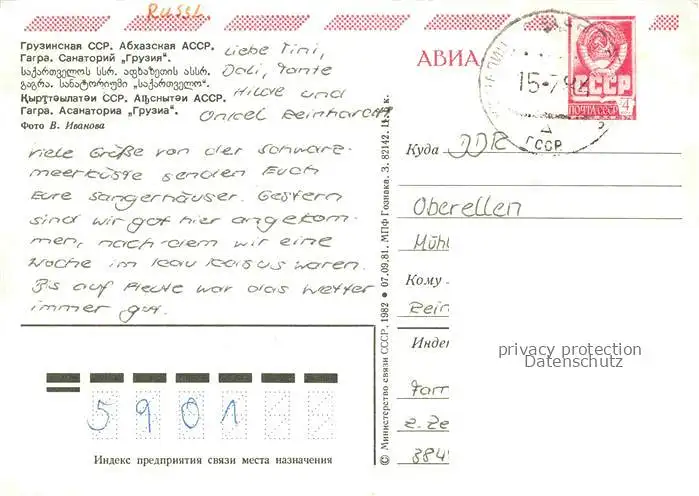 Russl.
Грузинская ССР. Абхазская АССР.
Гагра. Санаторий „Грузия“.
საქართველოს სსრ. აფხაზეთის ასსრ.
გაგრა. სანატორიუმი „საქართველო“.
Қырҭтәылатәи ССР. Аԥснытәи АССР.
Гагра. Асанаториа „Грузиа“.
Фото В. Иванова
Liebe Tini,
Doli, Tante
Hilde und
Onkel Reinhardt
viele Grüße von der Schwarz-
meerküste senden Euch
Eure Sangerhäuser. Gestern
sind wir gut hier angekom-
men, nach dem wir eine
Woche im Kaukasus waren.
Bis auf Heute war das Wetter
immer gut.
5901
Индекс предприятия связи места назначения
© Министерство связи СССР, 1982 ● 07.09.81. МПФ Гознака. З. 82142. Ц. 7 к.
АВИА
15-7
ГССР
СССР
ПОЧТА СССР
4
Куда DDR
Oberellen
Mühl
Кому
Rein
Индек
privacy protection
Datenschutz
Fam
z. Ze